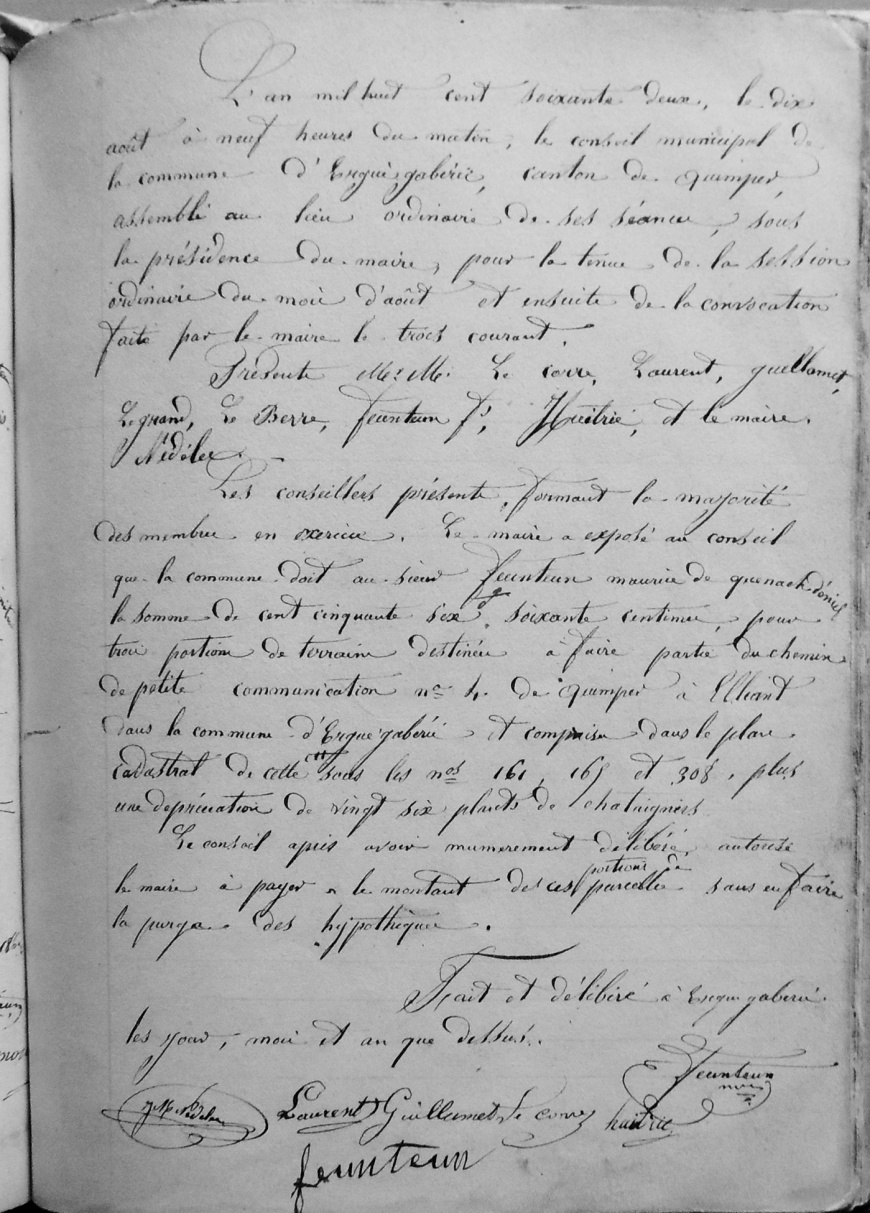 L'an mil huit cent soixante deux, le dix
août à neuf heures du matin, le conseil municipal de
la commune d'Ergué gabéric, canton de quimper,
assemblé au lieu ordinaire de ses séance, sous
la présidence du maire, pour la tenue de la session
ordinaire du mois d'août et ensuite de la convocation
faite par le maire le trois courant.
Présents M.M. Le corre, Laurent, guellamet,
Le grand, Le Berre, feunteun fs, Huitric, et le maire.
Nédélec.
Les conseillers présents, formant la majorité
des membres en exercice. Le maire a exposé au conseil
que la commune doit au sieur feunteun maurice de quenach déniel
la somme de cent cinquante six f soixante centimes, pour
trois portions de terrain destinées à faire partie du chemin
de petite communication no 4. de quimper à Elliant
dans la commune d'Ergué gabéric et comprises dans le plan
cadastral de cette cne sous les nos 161, 165 et 308. plus
une dépréciation de vingt six plants de chataigniers
Le conseil après avoir murement délibéré, autorise
le maire à payer le montant de ces portions de parcelles sans en faire
la purge des hypothèques.
Fait et délibéré à Ergué gabéric
les jour, mois et an que dessus.
feunteun
Laurent Guillamet Le corre huitric
feunteun